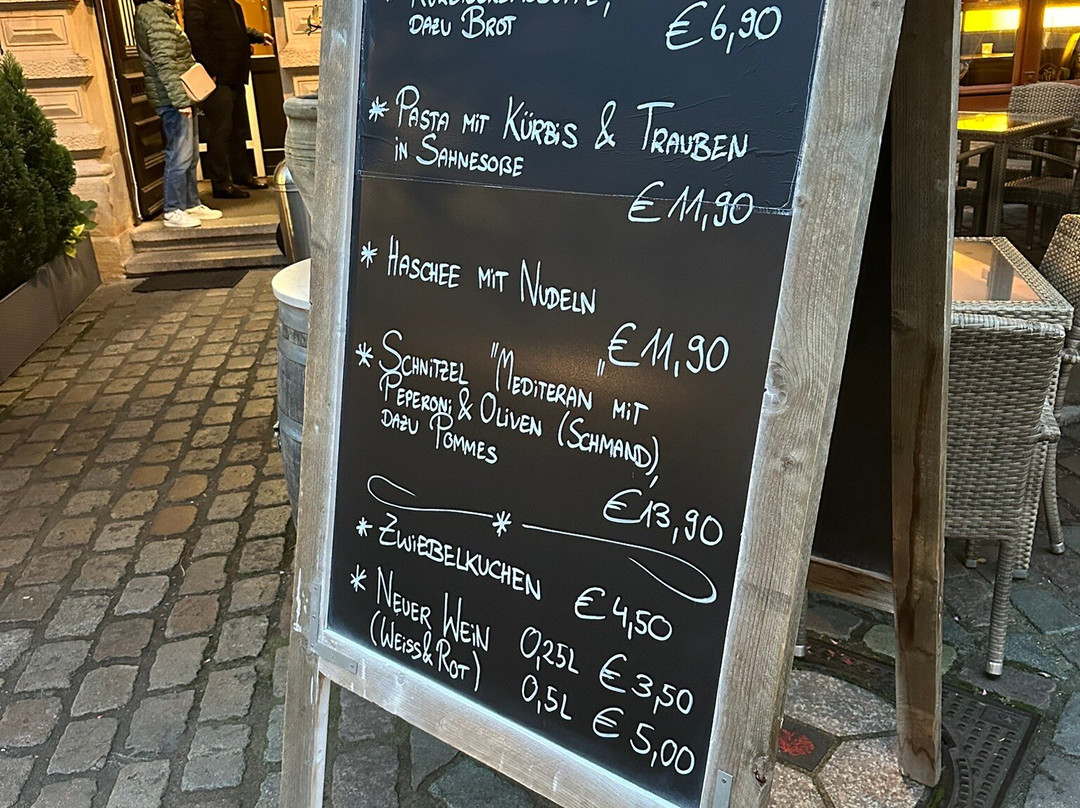 DAZU BROT
€6,90
* PASTA MIT KÜRBIS & TRAUBEN
IN SAHNESOßE
€11,90
* HASCHEE MIT NUDELN
€11,90
* SCHNITZEL "MEDITERAN" MIT
PEPERONI & OLIVEN (SCHMAND),
DAZU POMMES
€13,90
* ZWIEBELKUCHEN €4,50
* NEUER WEIN 0,25L €3,50
(WEISS&ROT) 0,5L €5,00